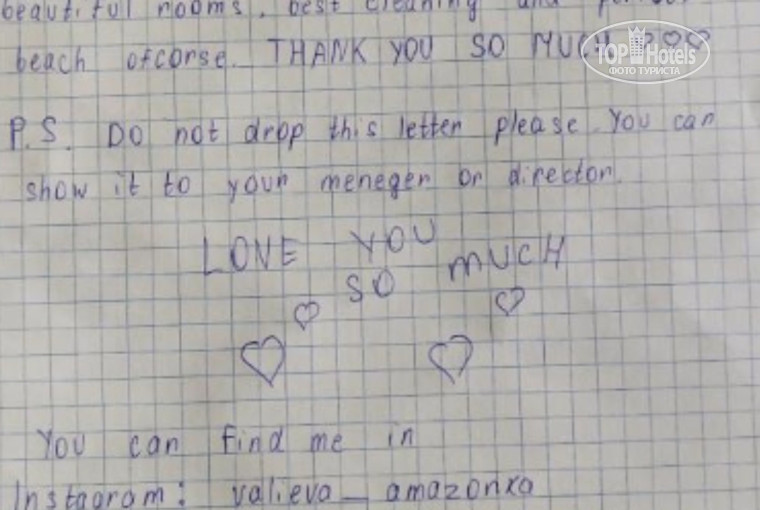 beautiful rooms, best cleaning and
beach ofcorse. THANK YOU SO MUCH
TOP Hotels
ФОТО ТУРИСТА
P.S. Do not drop this letter please. You can
show it to your meneger or director.
LOVE YOU
SO MUCH
You can find me in
Instagram: valieva_amazonka